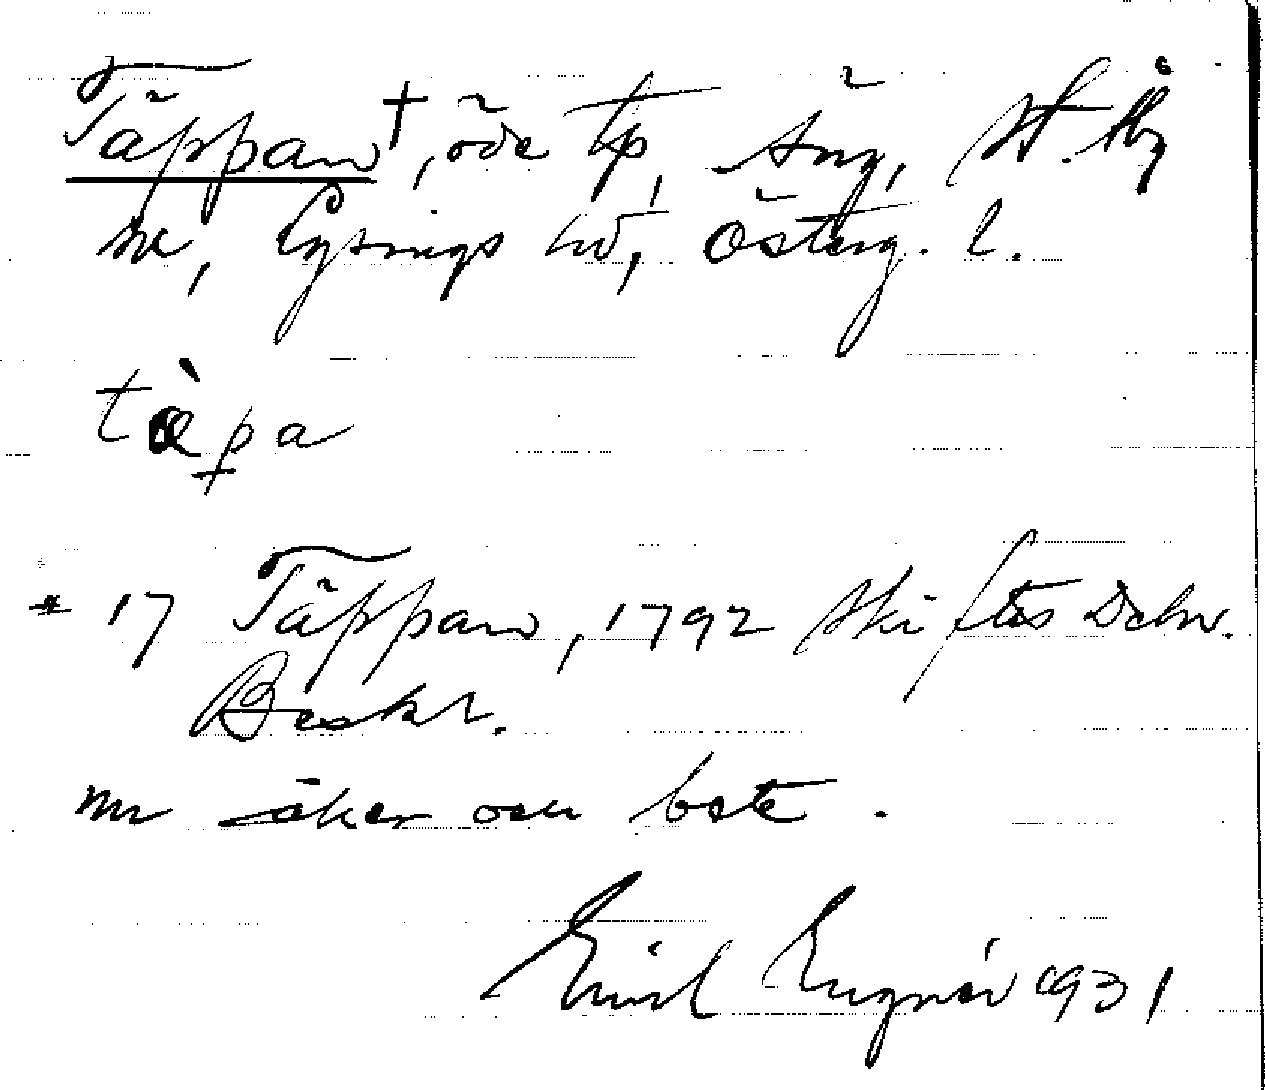 Täppan †, öde tp, Äng, St. Åby
sn, Lysings hd, Österg. l.
tæ̀pa
* 17 Täppan, 1792 Skiftes Deln.
Beskr.
nu åker och bete.
Emil Lugnér 1931